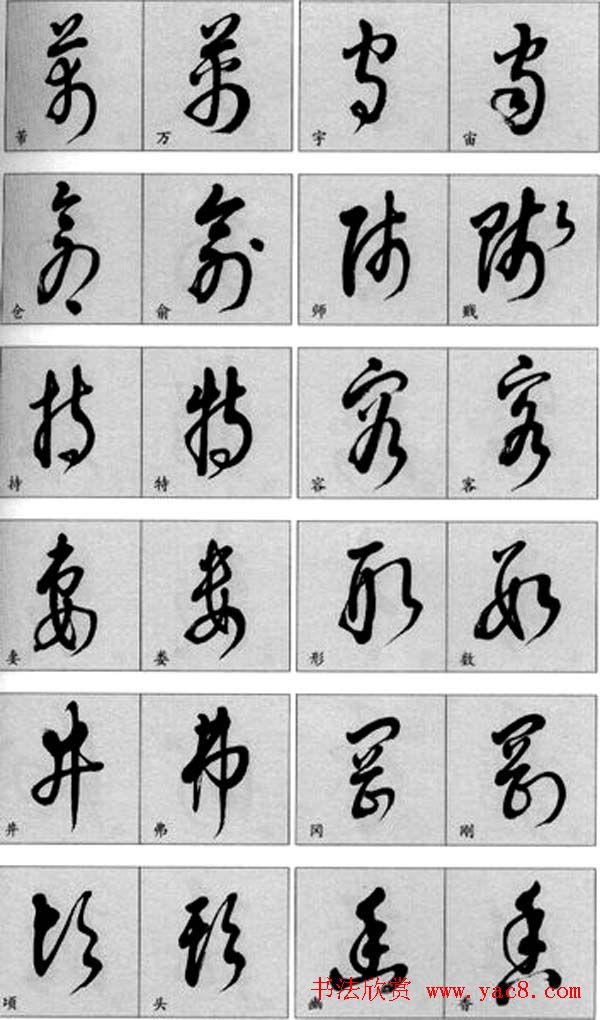 万 宇 宙
仓 俞 师 贱
持 特 容 客
妻 娄 形 数
井 弗 冈 刚
頃 头 幽 香
书法欣赏 www.yac8.com